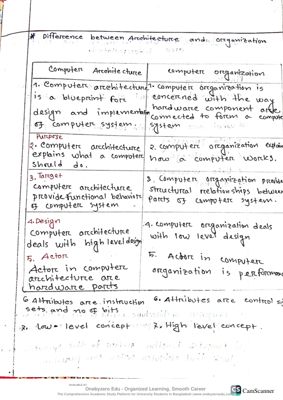 * Difference between Architecture and organization
Computer Architecture
computer organization
1. Computer architecture
is a blueprint for
design and implementation
of computer system.
1. Computer organization is
concerned with the way
hardware component are
connected to form a computer
system
Purpose
2. Computer architecture
explains what a computer
should do.
2. computer organization explain
how a computer works.
3. Target
computer architecture
provide functional behavior
of computer system
3. Computer organization
structural relationships between
parts of computer system.
4. Design
Computer architecture
deals with high level design
4. Computer organization deals
with low level design
5. Actor
Actor in computer
architecture are
hardware parts
5. Actor in computer
organization is performance
6 Attributes are instruction
sets and no of bits
6. Attributes are control
low-level concept
High level concept.
Onebyzero Edu - Organized Learning, Smooth Career
The Comprehensive Academic Study Platform for University Students in Bangladesh
CS CamScanner